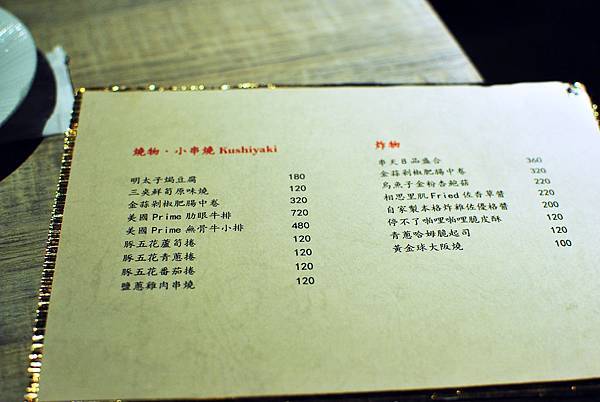 燒物·小串燒 Kushiyaki
明太子焗豆腐 180
三夾鮮荀原味燒 120
金蒜剁椒肥腸中卷 320
美國Prime肋眼牛排 720
美國Prime無骨牛小排 480
豚五花蘆荀捲 120
豚五花青蔥捲 120
豚五花番茄捲 120
鹽蔥雞肉串燒 120
炸物
串天8品盛合 360
金蒜剁椒肥腸中卷 320
烏魚子金粉杏鮑菇 220
相思里肌Fried佐香草醬 220
自家製本格炸雞佐優格醬 200
停不了啪哩啪哩脆皮酥 120
青蔥哈姆脆起司 120
黃金球大阪燒 100